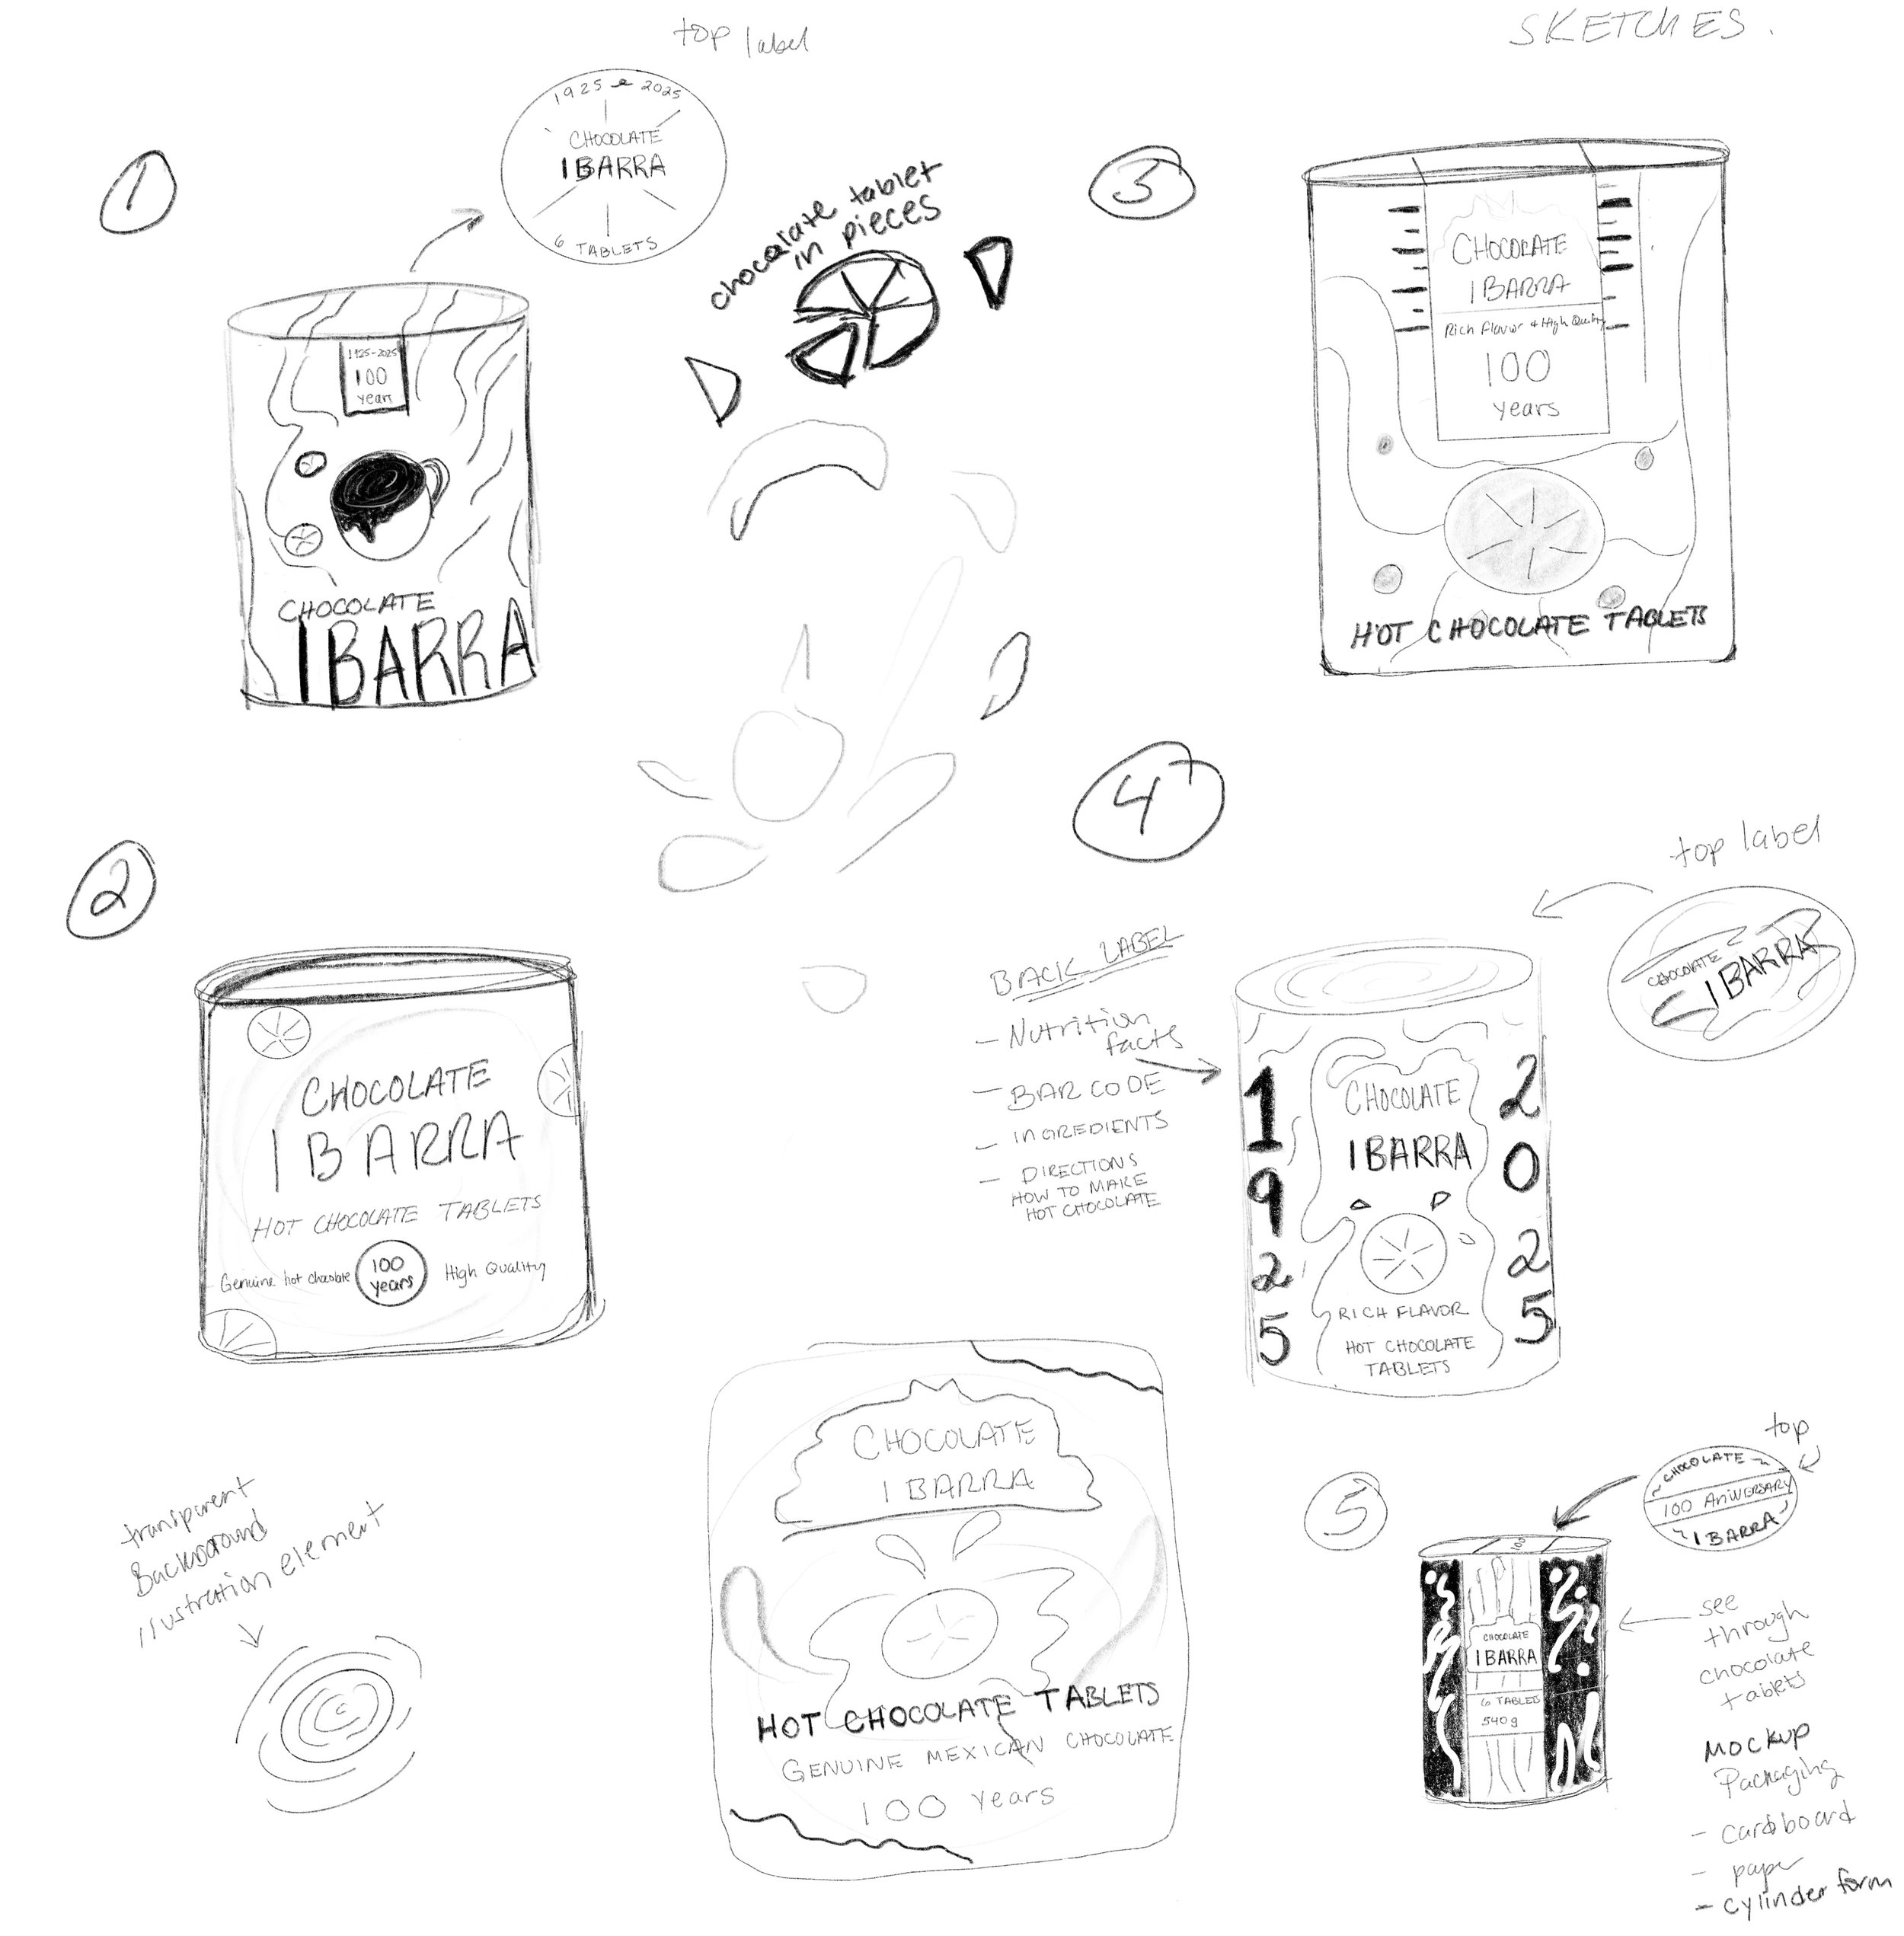 SKETCHES.
top label
1925 2025
CHOCOLATE
IBARRA
6 TABLETS
1
1925-2025
100
years
CHOCOLATE
IBARRA
chocolate tablet
in pieces
3
CHOCOLATE
IBARRA
Rich Flavor + High Quality
100
years
HOT CHOCOLATE TABLETS
2
CHOCOLATE
IBARRA
HOT CHOCOLATE TABLETS
Genuine hot chocolate
100
years
High Quality
4
top label
CHOCOLATE
IBARRA
BACK LABEL
- Nutrition
facts
- BAR CODE
- INGREDIENTS
- DIRECTIONS
HOW TO MAKE
HOT CHOCOLATE
1
9
2
5
CHOCOLATE
IBARRA
RICH FLAVOR
HOT CHOCOLATE
TABLETS
2
0
2
5
transparent
Background
illustration element
CHOCOLATE
IBARRA
HOT CHOCOLATE TABLETS
GENUINE MEXICAN CHOCOLATE
100 years
5
top
CHOCOLATE
100 ANIVERSARY
IBARRA
100
CHOCOLATE
IBARRA
6 TABLETS
540g
see
through
chocolate
tablets
Mockup
Packaging
- cardboard
- paper
- cylinder form